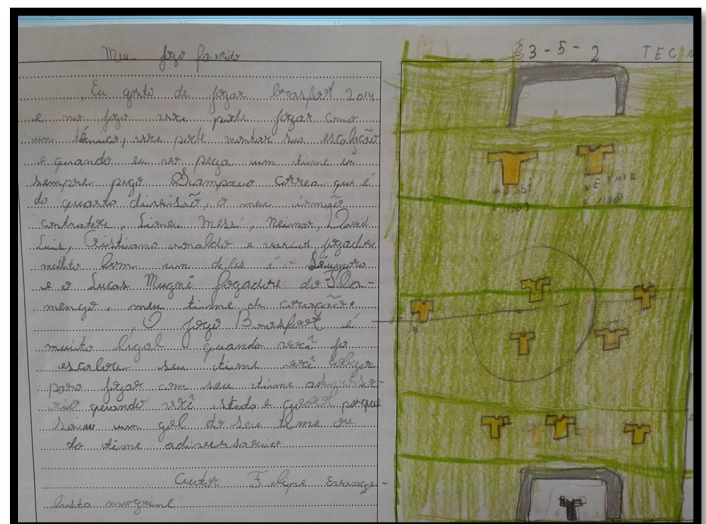 Meu jogo favorito
Eu gosto de jogar brasfoot 2014
e no jogo voce pode jogar como
um técnico, voce pode montar sua escalação
e quando eu vo pega um time eu
sempre pego Sampaio correa que é
da quarta divisão, o meu irmão
contratou, Lionel Messi, Neimar, David
Luis, Cristiano ronaldo e varios jogadore
muito bom um deles é
e o Lucas Mugni jogadore do Fla-
mengo, meu time de coração.
O jogo Brasfoot é
muito legal quando você ja
escalou seu time você
para jogar com seu time adversa-
rio quando você escuta e gooool porque
saiu um gol do seu time ou
do time adiversario
Autor Felipe Evange-
lista
3-5-2 TEC
MESSI
NEYMAR